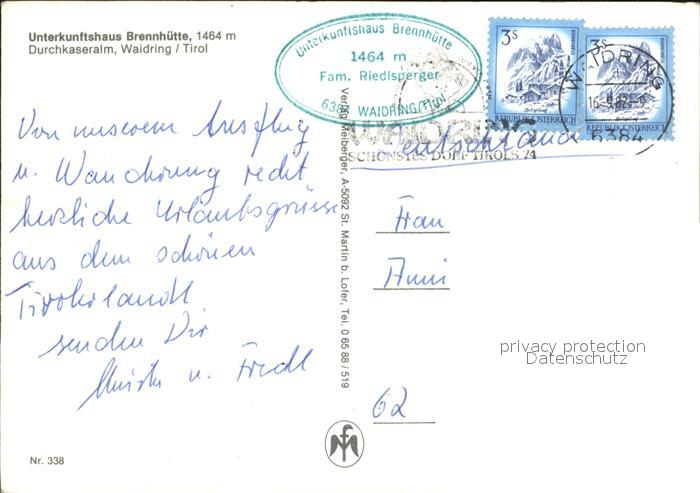 Unterkunftshaus Brennhütte, 1464 m
Durchkaseralm, Waidring / Tirol
Von unserem Ausflug
u. Wanderung recht
herzliche Urlaubsgrüsse
aus dem schönen
Tirolerlandl
senden Dir
u. Friedl
Nr. 338
Verlag Meiberger, A-5092 St. Martin b. Lofer, Tel. 0 65 88 / 519
Unterkunftshaus Brennhütte
1464 m
Fam. Riedlsperger
6384 WAIDRING/Tirol
3 S
REPUBLIK ÖSTERREICH
3 S
REPUBLIK ÖSTERREICH
WAIDRING
16.-9.82.-9
6384
WAIDRING
SCHÖNSTES DORF TIROLS 74
Deutschland
Frau
Anni
62
privacy protection
Datenschutz